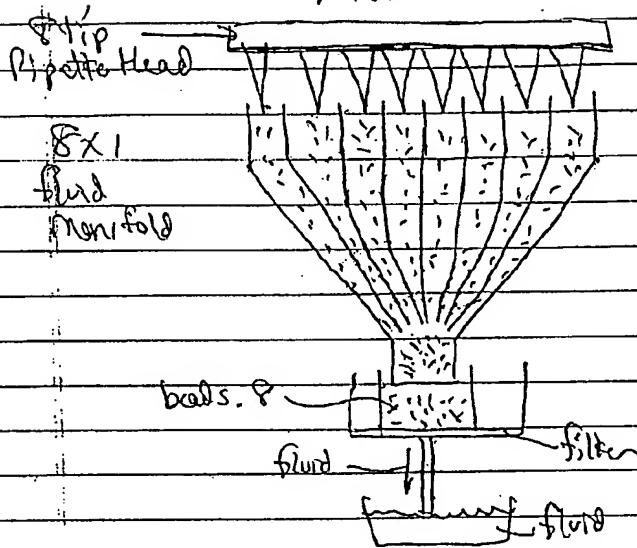 8 Tip
Pipette Head
8x1
fluid
Manifold
beads. 8
filter
fluid
fluid